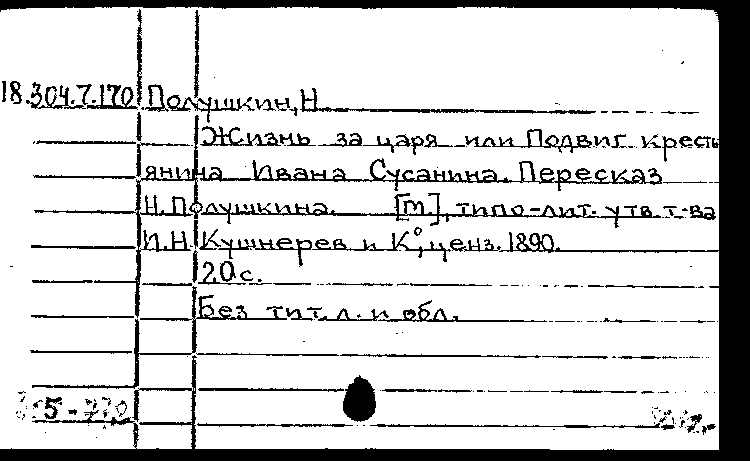 18.304.7.170 Полушкин, Н.
Жизнь за царя или Подвиг кресть
янина Ивана Сусанина. Пересказ
Н. Полушкина. [М.], типо-лит. утв. т-ва
И.Н. Кушнерев и К°, ценз. 1890.
20 с.
Без тит. л. и обл.